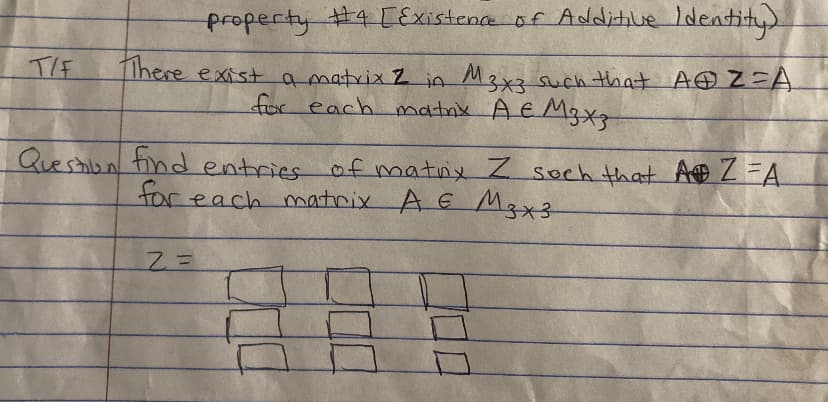 property #4 [Existence of Additive Identity)
T/F There exist a matrix Z in M3x3 such that A⊕ Z = A
for each matrix A ∈ M3x3
Question find entries of matrix Z soch that A⊕ Z = A
for each matrix A ∈ M3x3
Z =